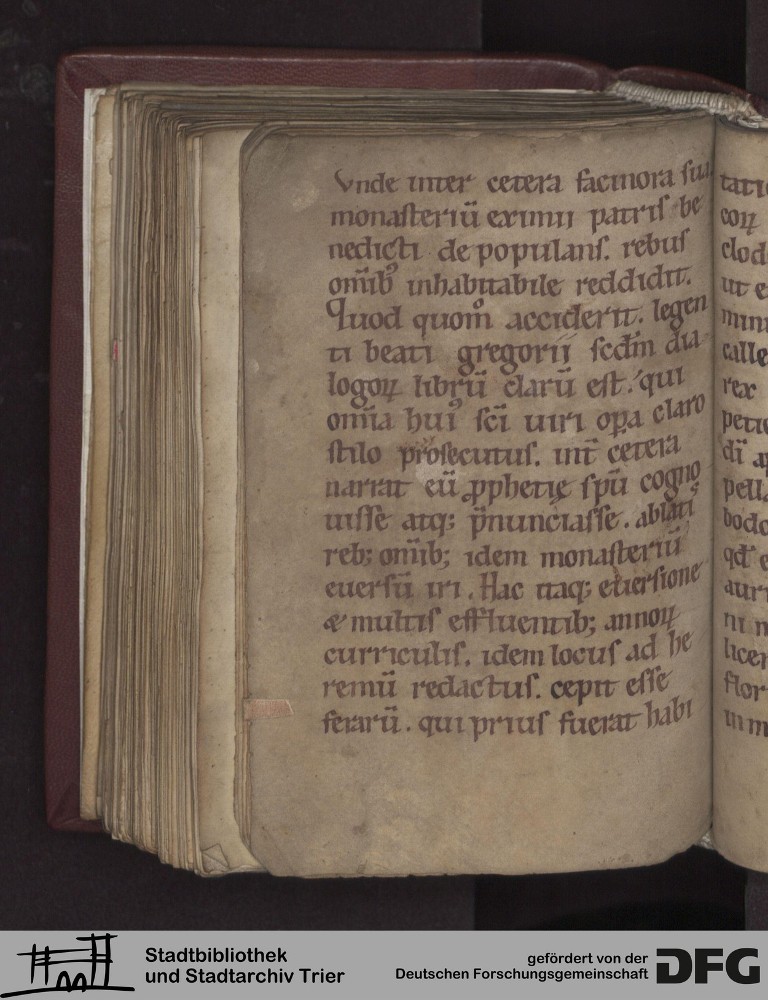 Vnde inter cetera facinora sua
monasteriū eximii patris be
nedicti depopulans. rebus
om̄ibꝰ inhabitabile reddidit.
Quod quom̊ acciderit. legen
ti beati gregorii scd̄m dia
logoꝝ librū clarū est. qui
om̄ia huiꝰ sc̄i uiri opa claro
stilo prosecutus. int̄ cetera
narrat eū ꝓphetię sp̄u cogno
uisse atq; p̄nunciasse. ablatis
reb; om̄ib; idem monasteriū
euersū iri. Hac itaq; euersione
æ multis effluentib; annoꝝ
curriculis. idem locus ad he
remū redactus. cepit esse
ferarū. qui prius fuerat habi
tati
coꝝ
clod
ut e
mini
calle
rex
petic
dī ap
pella
bodo
qd̄ e
auri
ni n
licen
flor
in m
Stadtbibliothek
und Stadtarchiv Trier
gefördert von der
Deutschen Forschungsgemeinschaft
DFG